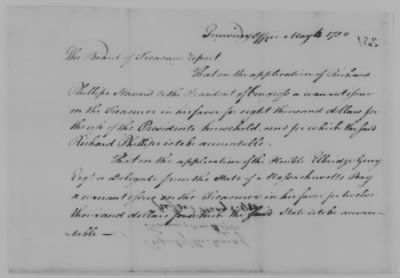 Treasury Office May 4 1780
The Board of Treasury report
That on the application of Richard
Phillips Steward to the President of Congress a warrant issue
on the Treasurer in his favor for eight thousand dollars for
the use of the Presidents household, and for which the said
Richard Phillips is to be accountable.
That on the application of the Honble Elbridge Gerry
Esqr. a Delegate from the State of Massachusetts Bay
a warrant issue on the Treasurer in his favor for twelve
thousand dollars for which the said State is to be accoun-
table —